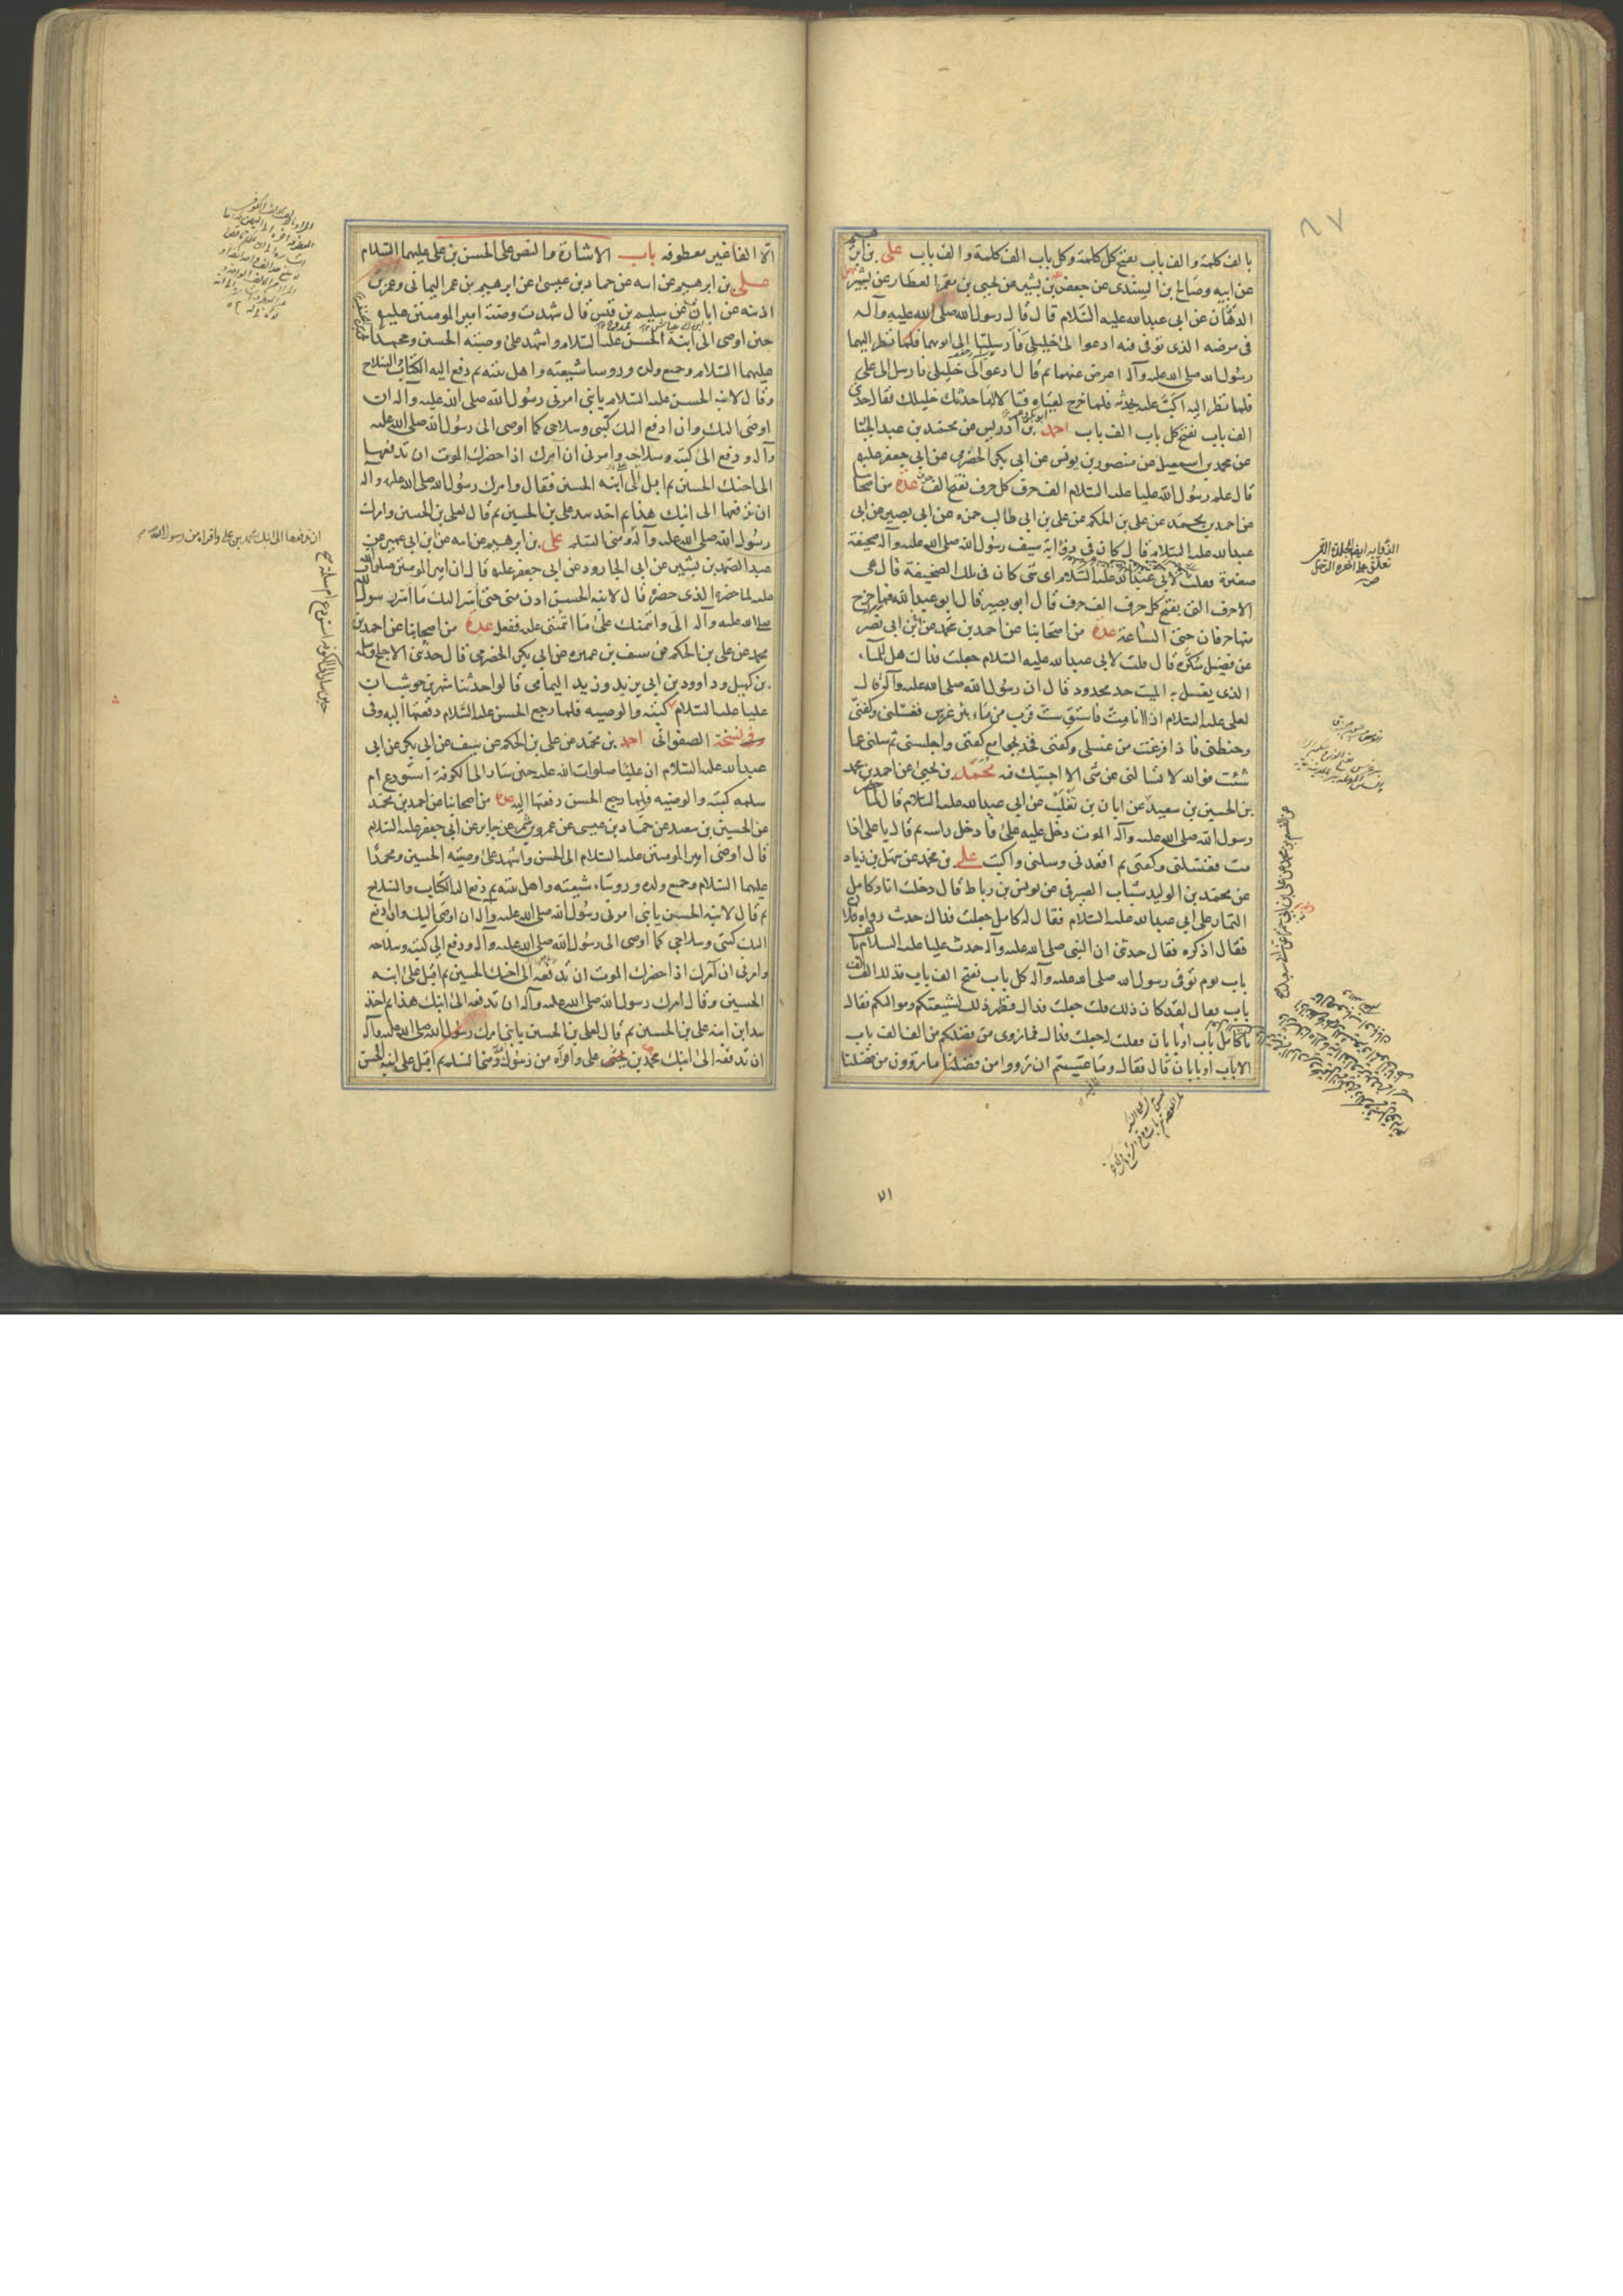 بالف كلمة والف باب يفتح كل كلمة وكل باب الف كلمة والف باب على بن ابرهيم
عن ابيه وصالح بن السندى عن جعفر بن بشير عن يحيى بن معمر العطار عن بشير
الدهان عن ابى عبدالله عليه السلام قال قال رسول الله صلى الله عليه وآله
فى مرضه الذى توفى فيه ادعوا لى خليلى فارسلتا الى ابويهما فلما نظر اليهما
رسول الله صلى الله عليه وآله اعرض عنهما ثم قال ادعوا لى خليلى فارسل الى على
فلما نظر اليه اكب عليه يحدثه فلما خرج لقياه فقالا له ما حدثك خليلك فقال حدثنى
الف باب يفتح كل باب الف باب احمد بن ادريس عن محمد بن عبد الجبار
عن محمد بن اسمعيل عن منصور بن يونس عن ابى بكر الحضرمى عن ابى جعفر عليه
قال علم رسول الله عليا عليه السلام الف حرف كل حرف يفتح الف حرف عدة من اصحابنا
عن احمد بن محمد عن على بن الحكم عن على بن ابى حمزه عن ابى بصير عن ابى
عبدالله عليه السلام قال كان فى ذؤابة سيف رسول الله صلى الله عليه وآله صحيفة
صغيرة فقلت لابى عبدالله عليه السلام اى شى كان فى تلك الصحيفة قال هى
الاحرف التى يفتح كل حرف الف حرف قال ابو بصير قال ابو عبدالله فما خرج
منها حرفان حتى الساعة عدة من اصحابنا عن احمد بن محمد عن ابن ابى نصر
عن فضيل سكرة قال قلت لابى عبدالله عليه السلام جعلت فداك هل للماء
الذى يغسل به الميت حد محدود قال ان رسول الله صلى الله عليه وآله قال
لعلى عليه السلام اذا انا مت فاستق ست قرب من ماء بئر غرس فغسلنى وكفنى
وحنطنى فاذا فرغت من غسلى وكفنى فخذ بجوامع كفنى واجلسنى ثم سلنى عما
شئت فوالله لا تسالنى عن شى الا اجبتك فيه محمد بن يحيى عن احمد بن محمد
بن الحسين بن سعيد عن ابان بن تغلب عن ابى عبدالله عليه السلام قال لما حضر
رسول الله صلى الله عليه وآله الموت دخل عليه على فادخل راسه ثم قال يا على اذا
مت فغسلنى وكفنى ثم اقعدنى وسلنى واكتب على بن محمد عن سهل بن زياد
عن محمد بن الوليد شباب الصيرفى عن يونس بن رباط قال دخلت انا وكامل
التمار على ابى عبدالله عليه السلام فقال له كامل جعلت فداك حديث رواه فلان
فقال اذكره فقال حدثنى ان النبى صلى الله عليه وآله حدث عليا عليه السلام بالف
باب يوم توفى رسول الله صلى الله عليه وآله كل باب يفتح الف باب فذلك الف الف
باب فقال لقد كان ذلك قلت جعلت فداك فظهر ذلك لشيعتكم ومواليكم فقال
يا كامل باب او بابان فقلت له جعلت فداك فما يروى من فضلكم من الف الف باب
الا باب او بابان قال فقال وما عسيتم ان ترووا من فضلنا ما تروون من فضلنا
الذؤابة ايضا الجلدة التى
تعلق على اخرة الرحل
ص
٧١
الا الفا غير معطوفه باب الاشارة والنص على الحسن بن على عليهما السلام
على بن ابرهيم عن ابيه عن حماد بن عيسى عن ابرهيم بن عمر اليمانى وعمر بن
اذينه عن ابان عن سليم بن قيس قال شهدت وصية امير المومنين عليه
حين اوصى الى ابنه الحسن عليه السلام واشهد على وصيته الحسين ومحمدا
عليهما السلام وجميع ولده ورؤساء شيعته واهل بيته ثم دفع اليه الكتاب والسلاح
وقال لابنه الحسن عليه السلام يا بنى امرنى رسول الله صلى الله عليه وآله ان
اوصى اليك وان ادفع اليك كتبى وسلاحى كما اوصى الى رسول الله صلى الله عليه
وآله ودفع الى كتبه وسلاحه وامرنى ان آمرك اذا حضرك الموت ان تدفعها
الى اخيك الحسين ثم اقبل على ابنه الحسين فقال وامرك رسول الله صلى الله عليه وآله
ان تدفعها الى ابنك هذا ثم اخذ بيد على بن الحسين ثم قال لعلى بن الحسين وامرك
رسول الله صلى الله عليه وآله ومنى السلم على بن ابرهيم عن ابيه عن ابن ابى عمير عن
عبد الصمد بن بشير عن ابى الجارود عن ابى جعفر عليه قال ان امير المومنين صلوات الله
عليه لما حضره الذى حضره قال لابنه الحسن ادن منى حتى اسر اليك ما اسر رسول الله
صلى الله عليه وآله الى وائتمنك على ما ائتمننى عليه ففعل عدة من اصحابنا عن احمد بن
محمد عن على بن الحكم عن سيف بن عميره عن ابى بكر الحضرمى قال حدثنى الاجلح وسلمه
بن كهيل وداوود بن ابى يزيد وزيد اليمامى قالوا حدثنا شهر بن حوشب ان
عليا عليه السلام كتبه والوصيه فلما رجع الحسن عليه السلام دفعتها اليه وفى
وفى نسخة الصفوانى احمد بن محمد عن على بن الحكم عن سيف عن ابى بكر عن ابى
عبدالله عليه السلام ان عليا صلوات الله عليه حين سار الى الكوفة استودع ام
سلمه كتبه والوصيه فلما رجع الحسن دفعتها اليه عدة من اصحابنا عن احمد بن محمد
عن الحسين بن سعيد عن حماد بن عيسى عن عمرو بن شمر عن جابر عن ابى جعفر عليه السلام
قال اوصى امير المومنين عليه السلام الى الحسن واشهد على وصيته الحسين ومحمدا
عليهما السلام وجميع ولده ورؤساء شيعته واهل بيته ثم دفع اليه الكتاب والسلاح
ثم قال لابنه الحسن يا بنى امرنى رسول الله صلى الله عليه وآله ان اوصى اليك وان ادفع
اليك كتبى وسلاحى كما اوصى الى رسول الله صلى الله عليه وآله ودفع الى كتبه وسلاحه
وامرنى ان آمرك اذا حضرك الموت ان تدفعه الى اخيك الحسين ثم اقبل على ابنه
الحسين وقال امرك رسول الله صلى الله عليه وآله ان تدفعه الى ابنك هذا ثم اخذ
بيد ابن ابنه على بن الحسين ثم قال لعلى بن الحسين يا بنى امرك رسول الله صلى الله عليه وآله
ان تدفعه الى ابنك محمد بن على واقرأه من رسول الله ومنى السلم ثم اقبل على ابنه الحسن
ان تدفعها الى ابنك محمد بن على واقراه من رسول الله
حين سار الى الكوفه استودع ام سلمة